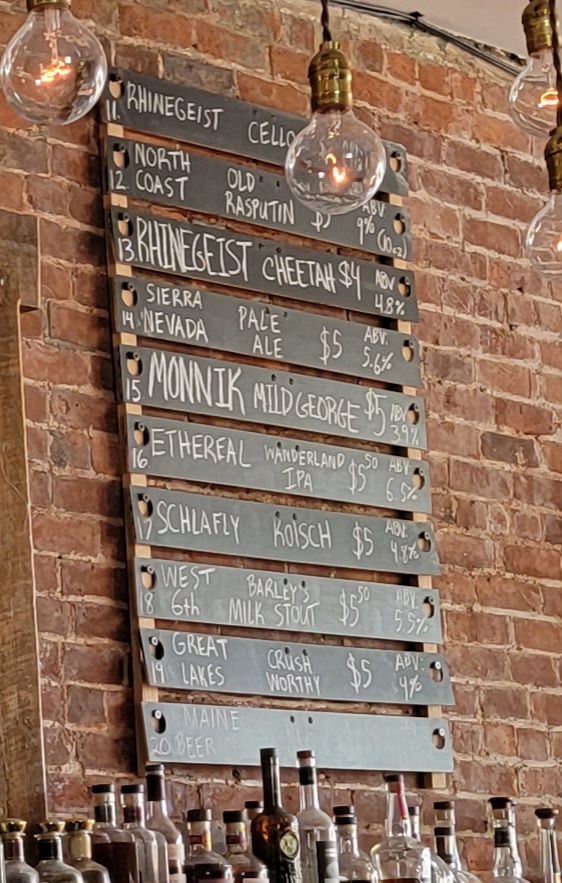 11. RHINEGEIST CELLO
12. NORTH COAST OLD RASPUTIN $5 ABV 9% (10oz)
13. RHINEGEIST CHEETAH $4 ABV 4.8%
14. SIERRA NEVADA PALE ALE $5 ABV. 5.6%
15. MONNIK MILD GEORGE $5 ABV 3.9%
16 ETHEREAL WANDERLAND IPA $5.50 ABV. 6.5%
17 SCHLAFLY KOLSCH $5 ABV. 4.8%
18 WEST 6th BARLEY'S MILK STOUT $5.50 ABV. 5.5%
19 GREAT LAKES CRUSH WORTHY $5 ABV. 4%
20 MAINE BEER